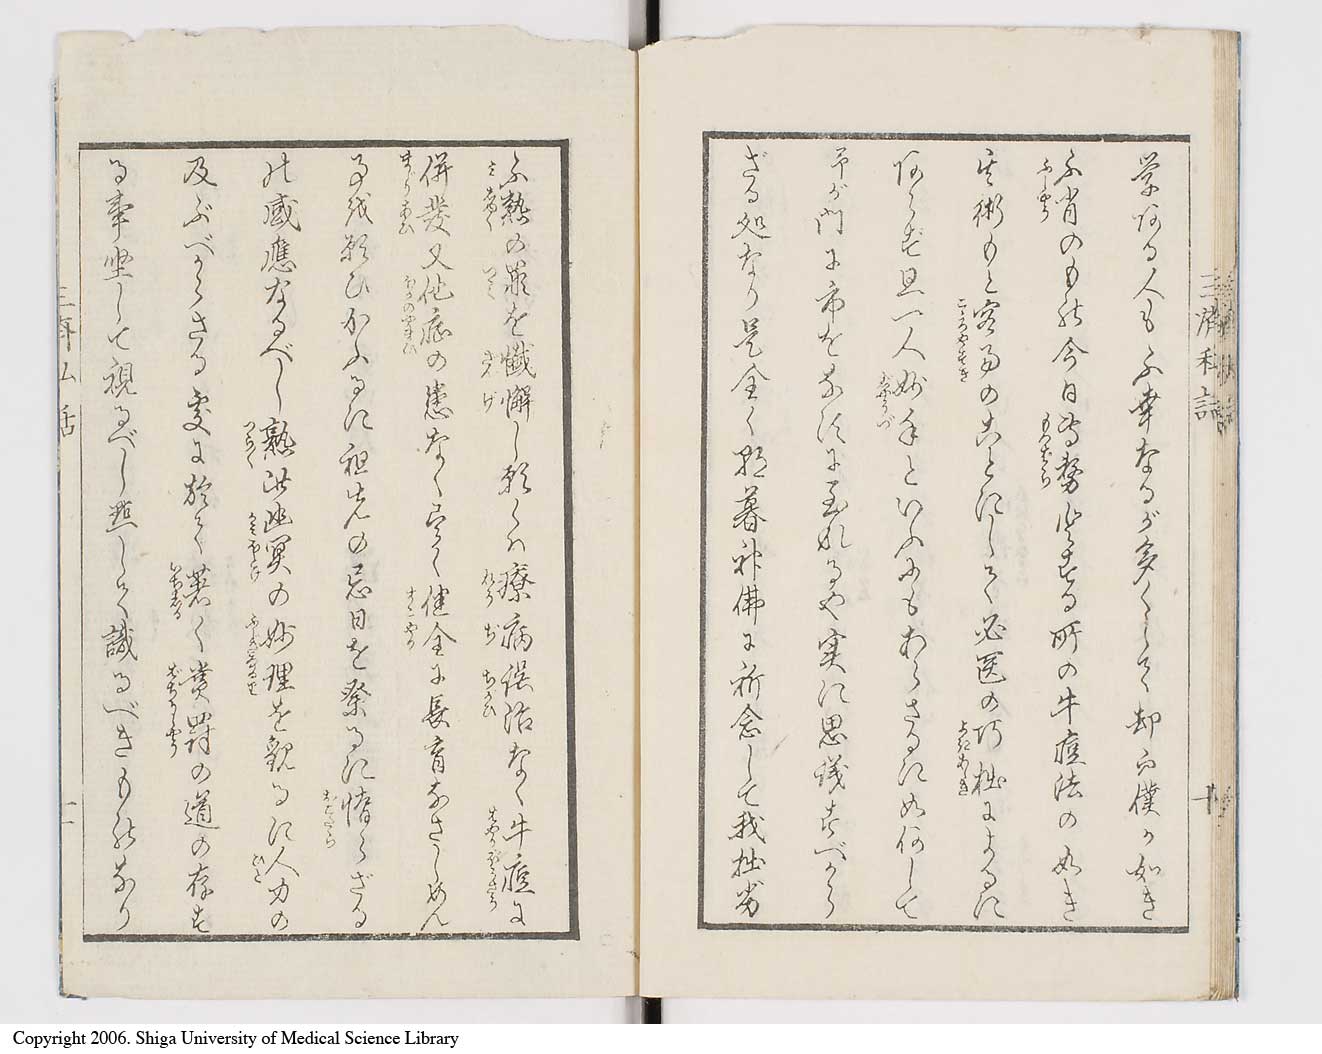 学ある人も不幸なるが多くして却而僕が如き
不肖のもの今日専務とする所の牛痘法の如き
其術もと容易のことにして必医の巧拙によるに
あらず且一人妙手といふにもあらざるに如何して
予が門に市をなすに至れるや実に思議すべから
ざる処なり是全く朝暮神佛に祈念して我拙劣
不熟の罪を懺悔し願くは療病誤治なく牛痘に
併発又他症の患なく尽く健全に長育なさしめん
事を願ひかふるに祖先の忌日を祭るに惰らざる
の感應なるべし熟此幽冥の妙理を観るに人力の
及ぶべからざる処に於て著く賞罸の道の存す
る事坐して視るべし黙して識るべきものなり
三済私話
十
十一
Copyright 2006. Shiga University of Medical Science Library